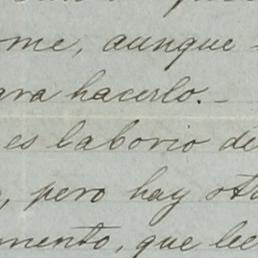 ome, aunque
ara hacerlo.-
es laborio de
, pero hay otr
mento, que lee